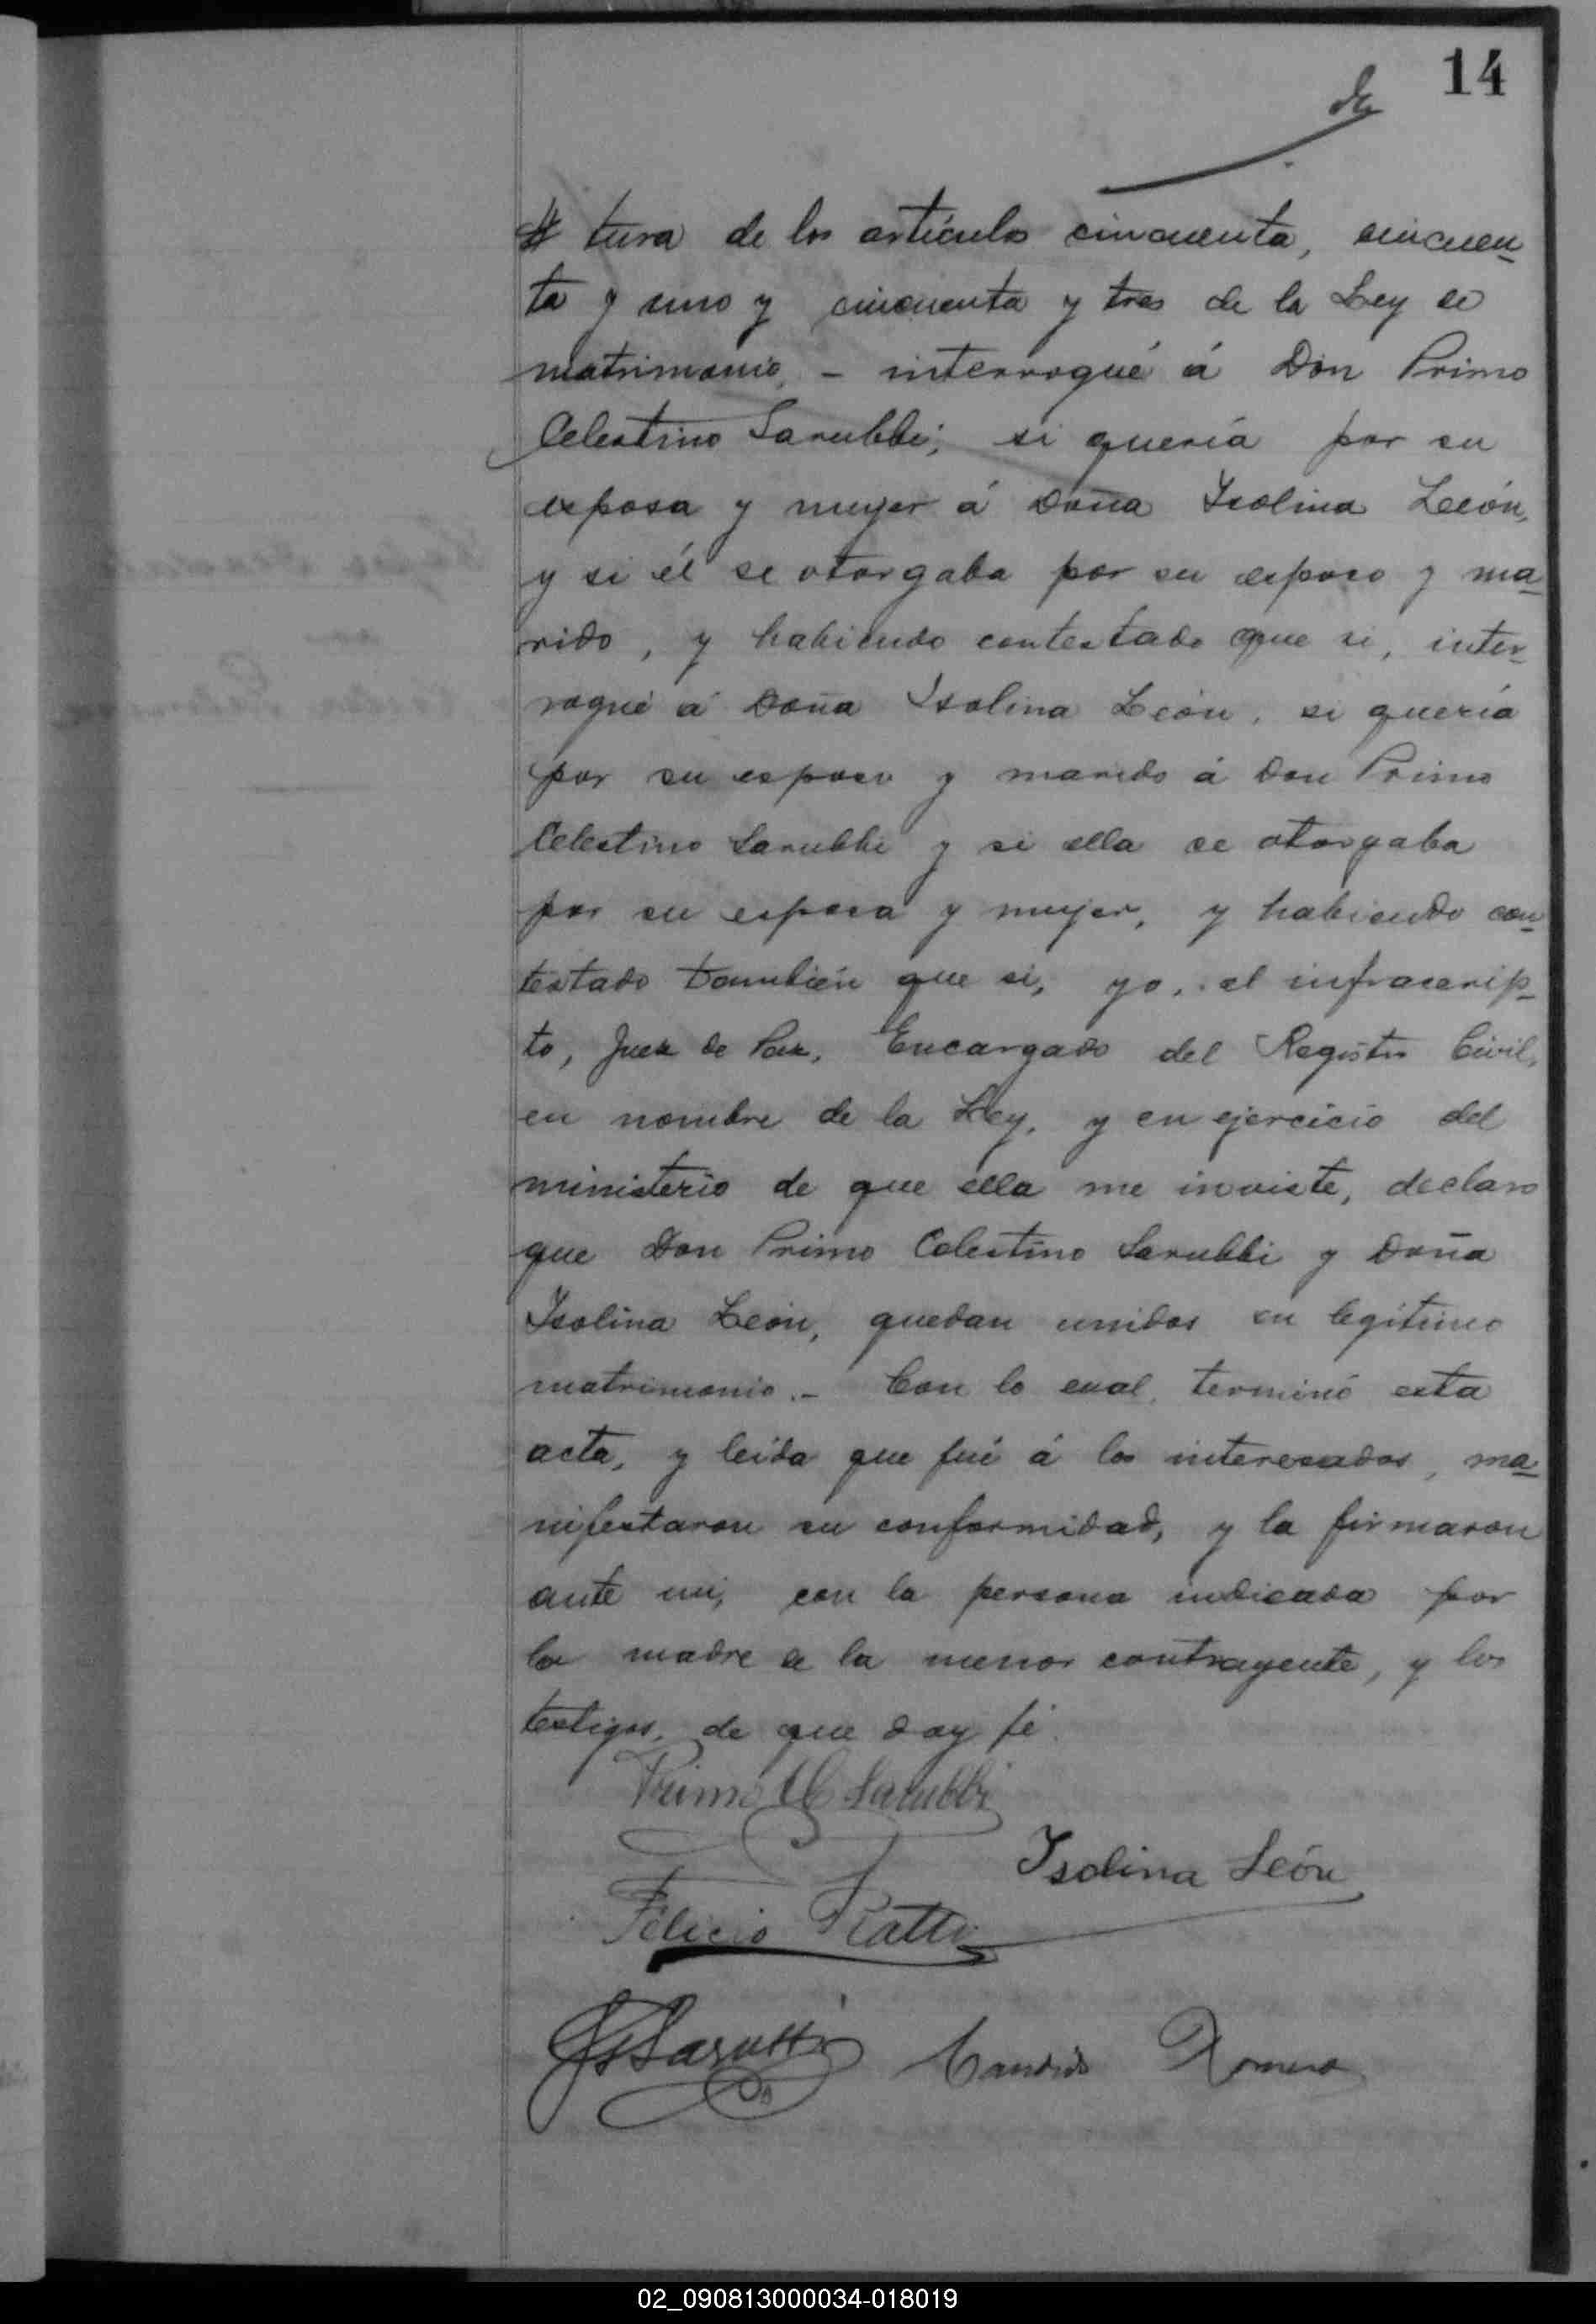 14
tura de los artículos cincuenta, cincuen-
ta y uno y cincuenta y tres de la Ley de
matrimonio, - interrogué á Don Primo
Celestino Sarubbi, si quería por su
esposa y mujer á Doña Isolina León,
y si él se otorgaba por su esposo y ma-
rido, y habiendo contestado que si, inter-
rogué á Doña Isolina León, si quería
por su esposo y marido á Don Primo
Celestino Sarubbi y si ella se otorgaba
por su esposa y mujer, y habiendo con-
testado también que si, yo, el infrascrip-
to, Juez de Paz, Encargado del Registro Civil,
en nombre de la Ley, y en ejercicio del
ministerio de que ella me inviste, declaro
que Don Primo Celestino Sarubbi y Doña
Isolina León, quedan unidos en legítimo
matrimonio.- Con lo cual, terminó esta
acta, y leída que fué á los interesados, ma-
nifestaron su conformidad, y la firmaron
ante mi, con la persona indicada por
la madre de la menor contrayente, y los
testigos, de que doy fé.
Primo C Sarubbi
Isolina León
Felicio Piatti
Sarubbi Candido Romero
02_090813000034-018019